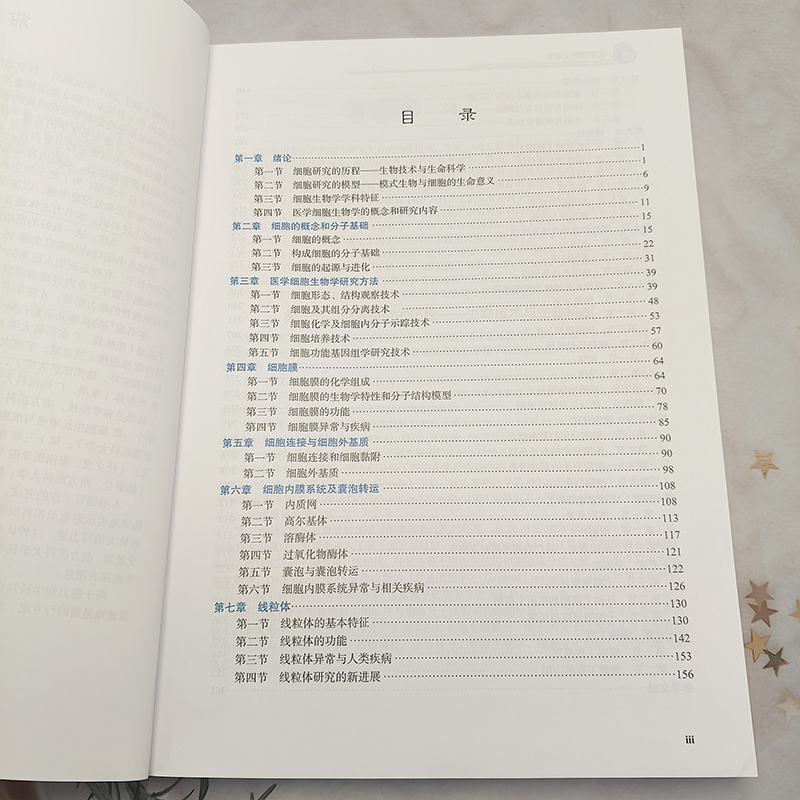 目 录
第一章 绪论 1
第一节 细胞研究的历程——生物技术与生命科学 1
第二节 细胞研究的模型——模式生物与细胞的生命意义 6
第三节 细胞生物学学科特征 9
第四节 医学细胞生物学的概念和研究内容 11
第二章 细胞的概念和分子基础 15
第一节 细胞的概念 15
第二节 构成细胞的分子基础 22
第三节 细胞的起源与进化 31
第三章 医学细胞生物学研究方法 39
第一节 细胞形态、结构观察技术 39
第二节 细胞及其组分分离技术 48
第三节 细胞化学及细胞内分子示踪技术 53
第四节 细胞培养技术 57
第五节 细胞功能基因组学研究技术 60
第四章 细胞膜 64
第一节 细胞膜的化学组成 64
第二节 细胞膜的生物学特性和分子结构模型 70
第三节 细胞膜的功能 78
第四节 细胞膜异常与疾病 85
第五章 细胞连接与细胞外基质 90
第一节 细胞连接和细胞黏附 90
第二节 细胞外基质 98
第六章 细胞内膜系统及囊泡转运 108
第一节 内质网 108
第二节 高尔基体 113
第三节 溶酶体 117
第四节 过氧化物酶体 121
第五节 囊泡与囊泡转运 122
第六节 细胞内膜系统异常与相关疾病 126
第七章 线粒体 130
第一节 线粒体的基本特征 130
第二节 线粒体的功能 142
第三节 线粒体异常与人类疾病 153
第四节 线粒体研究的新进展 156
iii